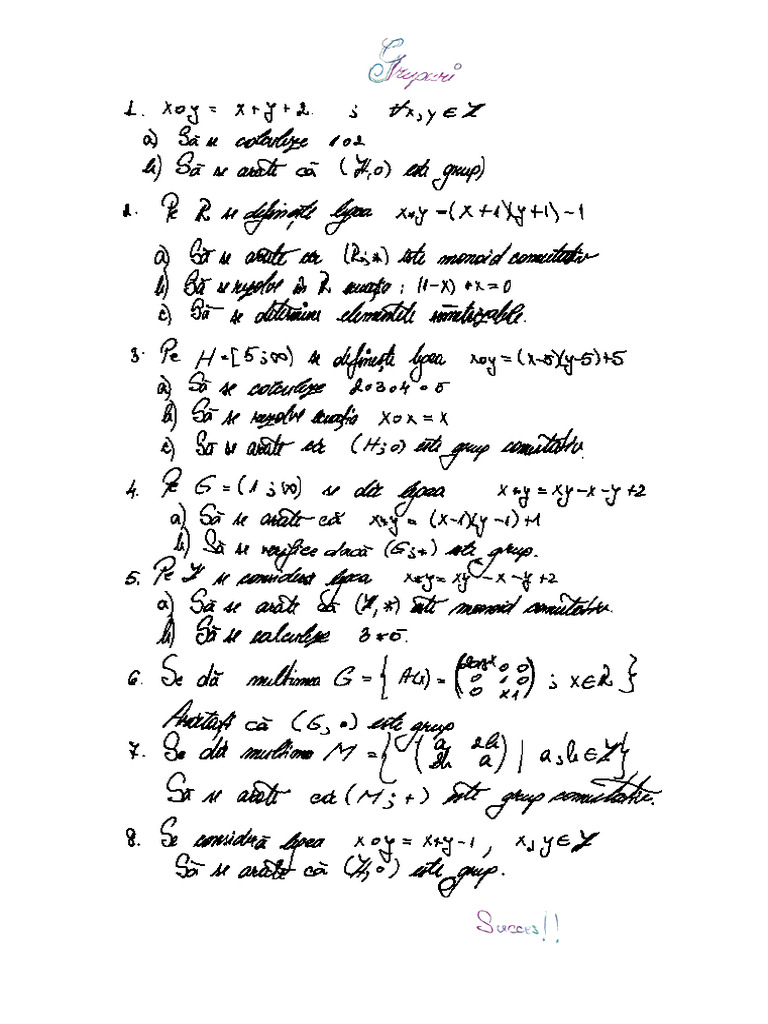 Grupuri
1. x∘y = x+y+2 ; ∀x,y ∈ Z
a) Să se calculeze 1∘2
b) Să se arate că (Z,∘) este grup)
2. Pe R se definește legea x*y=(x+1)(y+1)-1
a) Să se arate că (R;*) este monoid comutativ
b) Să se rezolve în R ecuația ; (1-x)*x=0
c) Să se determine elementele simetrizabile.
3. Pe H=[5;∞) se definește legea x∘y=(x-5)(y-5)+5
a) Să se calculeze 2∘3∘4∘5
b) Să se rezolve ecuația x∘x=x
c) Să se arate că (H;∘) este grup comutativ.
4. Pe G=(1;∞) se dă legea x*y=xy-x-y+2
a) Să se arate că x*y=(x-1)(y-1)+1
b) Să se verifice dacă (G;*) este grup.
5. Pe Z se consideră legea x*y=xy-x-y+2
a) Să se arate că (Z,*) este monoid comutativ.
b) Să se calculeze 3*5.
6. Se dă mulțimea G={A(x)=( 0 0 0 1 0 0 x 1) ; x∈R}
Arătați că (G,∘) este grup
7. Se dă mulțimea M={(a 2b a) | a,b∈Z}
Să se arate că (M;+) este grup comutativ.
8. Se consideră legea x∘y=x+y-1, x,y∈Z
Să se arate că (Z,∘) este grup.
Succes!!